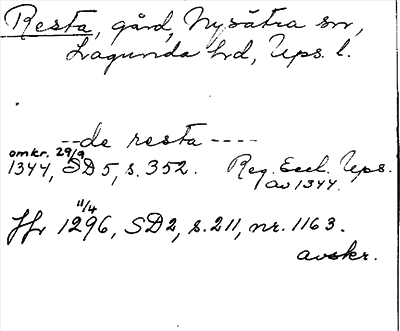 Resta, gård, Nysätra sn,
Lagunda hd, Ups. l.
--de resta ----
omkr. 29/9
1344, SD5, s. 352. Reg. Eccl. Ups.
av 1344.
11/4
Jfr 1296, SD2, s. 211, nr. 1163.
avskr.